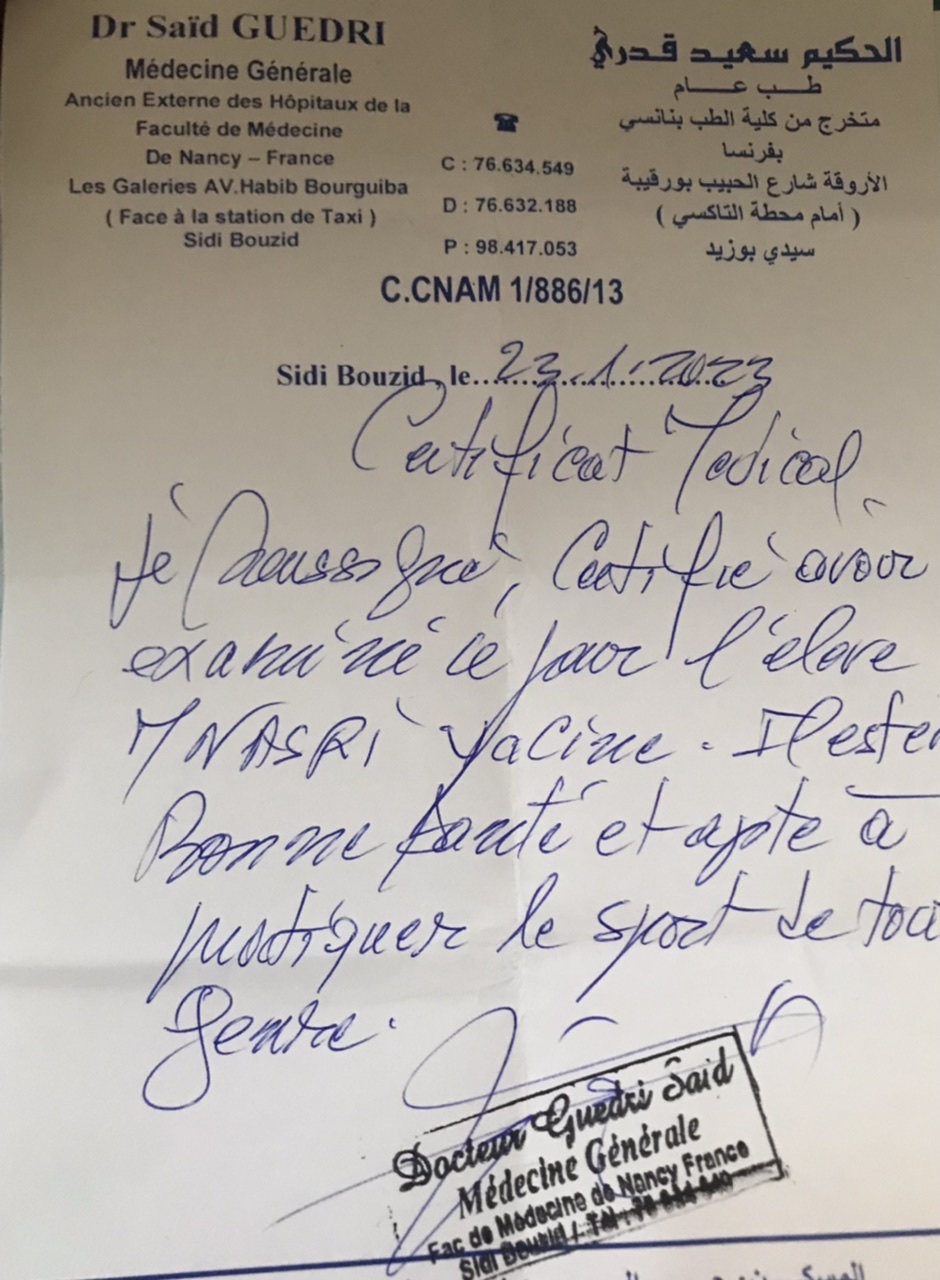 Dr Saïd GUEDRI
Médecine Générale
Ancien Externe des Hôpitaux de la
Faculté de Médecine
De Nancy – France
Les Galeries AV.Habib Bourguiba
( Face à la station de Taxi )
Sidi Bouzid
☎
C : 76.634.549
D : 76.632.188
P : 98.417.053
الحكيم سعيد قدري
طب عام
متخرج من كلية الطب بنانسي
بفرنسا
الأروقة شارع الحبيب بورقيبة
( أمام محطة التاكسي )
سيدي بوزيد
C.CNAM 1/886/13
Sidi Bouzid, le 23.1.2023
Certificat Medical
Je soussigné, Certifie avoir
examiné ce jour l'élève
MNASRI Yacine. Il est en
Bonne santé et apte à
pratiquer le sport de tou
Genre.
Docteur Guedri Said
Médecine Générale
Fac de Médecine de Nancy France
Sidi Bouzid / Tél : 76 634 549